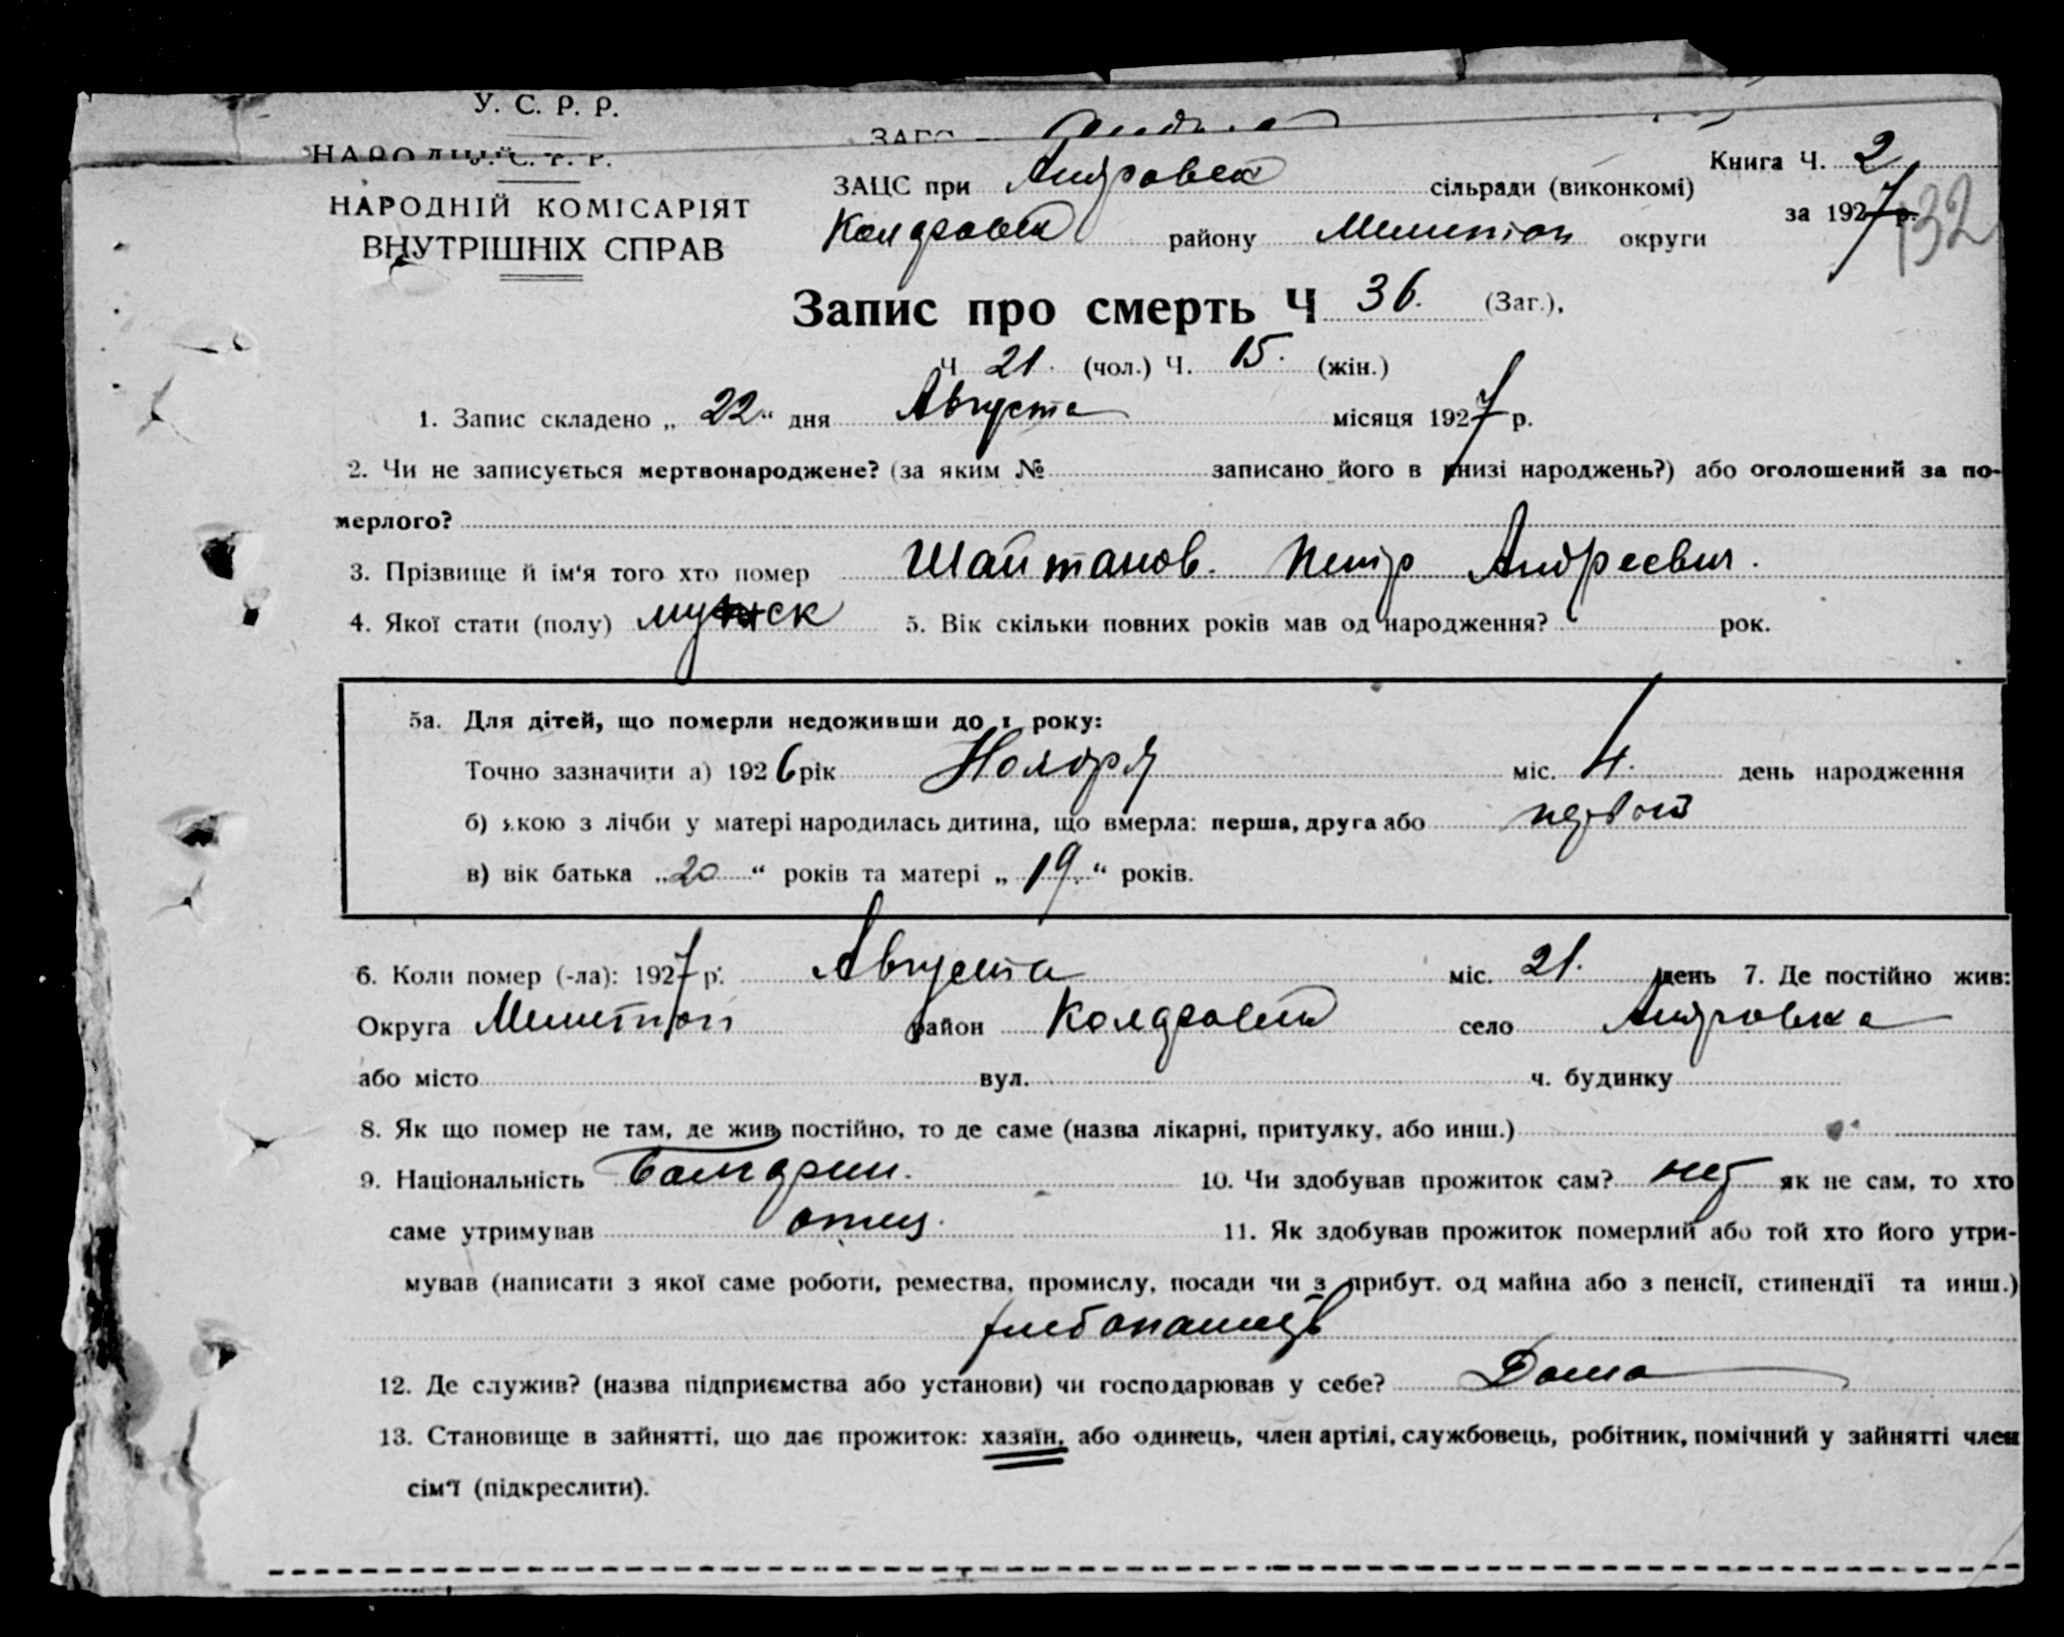 У. С. Р. Р.
ЗАЦС при Андровск сільради (виконкомі)
Книга Ч. 2
за 1927 р.
132
НАРОДНІЙ КОМІСАРІЯТ
ВНУТРІШНІХ СПРАВ
району Мелитоп округи
Запис про смерть Ч 36. (Заг.),
Ч 21. (чол.) Ч. 15. (жін.)
1. Запис складено „ 22 “ дня Августа місяця 1927 р.
2. Чи не записується мертвонароджене? (за яким № записано його в книзі народжень?) або оголошений за по-
мерлого?
3. Прізвище й ім'я того хто помер Шайтанов. Петр Андреевич.
4. Якої стати (полу) мужск 5. Вік скільки повних років мав од народження? рок.
5а. Для дітей, що померли недоживши до 1 року:
Точно зазначити а) 1926 рік Ноября міс. 4. день народження
б) якою з лічби у матері народилась дитина, що вмерла: перша, друга або первой
в) вік батька „ 20 “ років та матері „ 19. “ років.
6. Коли помер (-ла): 1927 р. Августа міс. 21. день 7. Де постійно жив:
Округа Мелитоп район село Андровка
або місто вул. ч. будинку
8. Як що помер не там, де жив постійно, то де саме (назва лікарні, притулку, або инш.)
9. Національність Болгарин. 10. Чи здобував прожиток сам? нет як не сам, то хто
саме утримував отец. 11. Як здобував прожиток померлий або той хто його утри-
мував (написати з якої саме роботи, ремества, промислу, посади чи з прибут. од майна або з пенсії, стипендії та инш.)
хлебопашец
12. Де служив? (назва підприємства або установи) чи господарював у себе? Дома
13. Становище в зайнятті, що дає прожиток: хазяїн, або одинець, член артілі, службовець, робітник, помічний у зайнятті член
сім'ї (підкреслити).